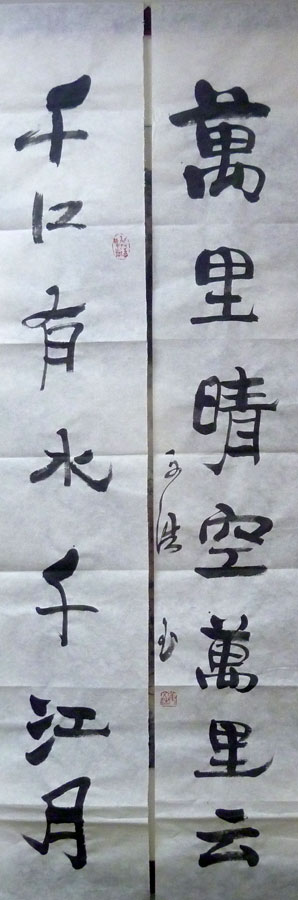 萬里晴空萬里云
千江有水千江月